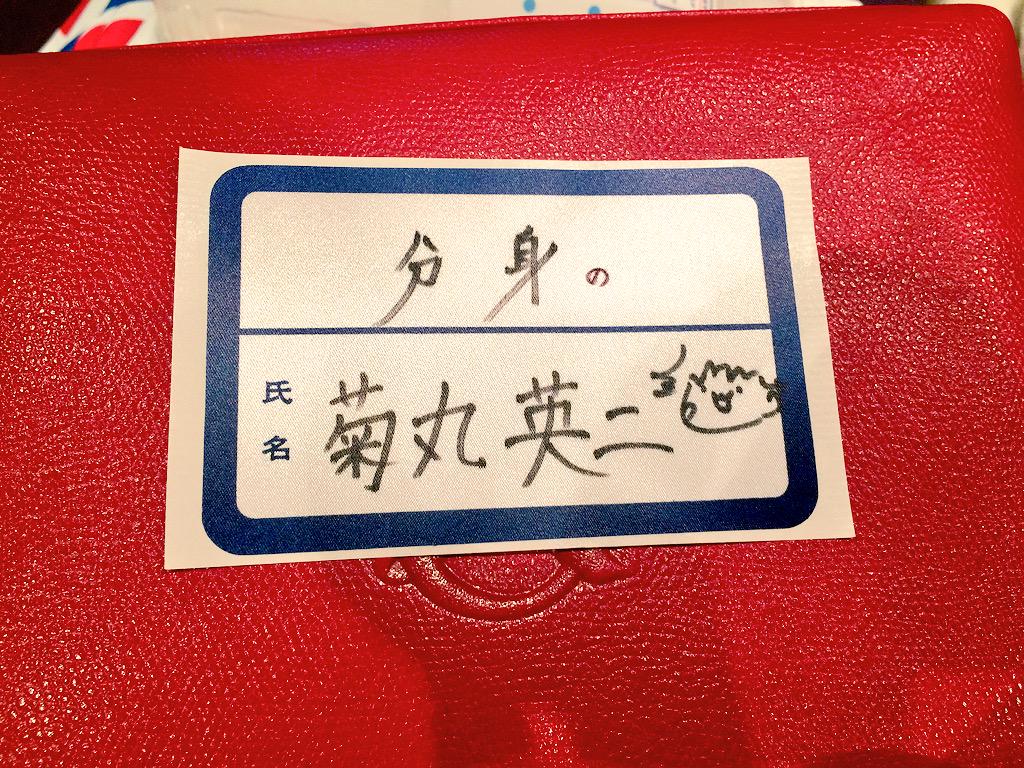 分身の
氏名 菊丸英二